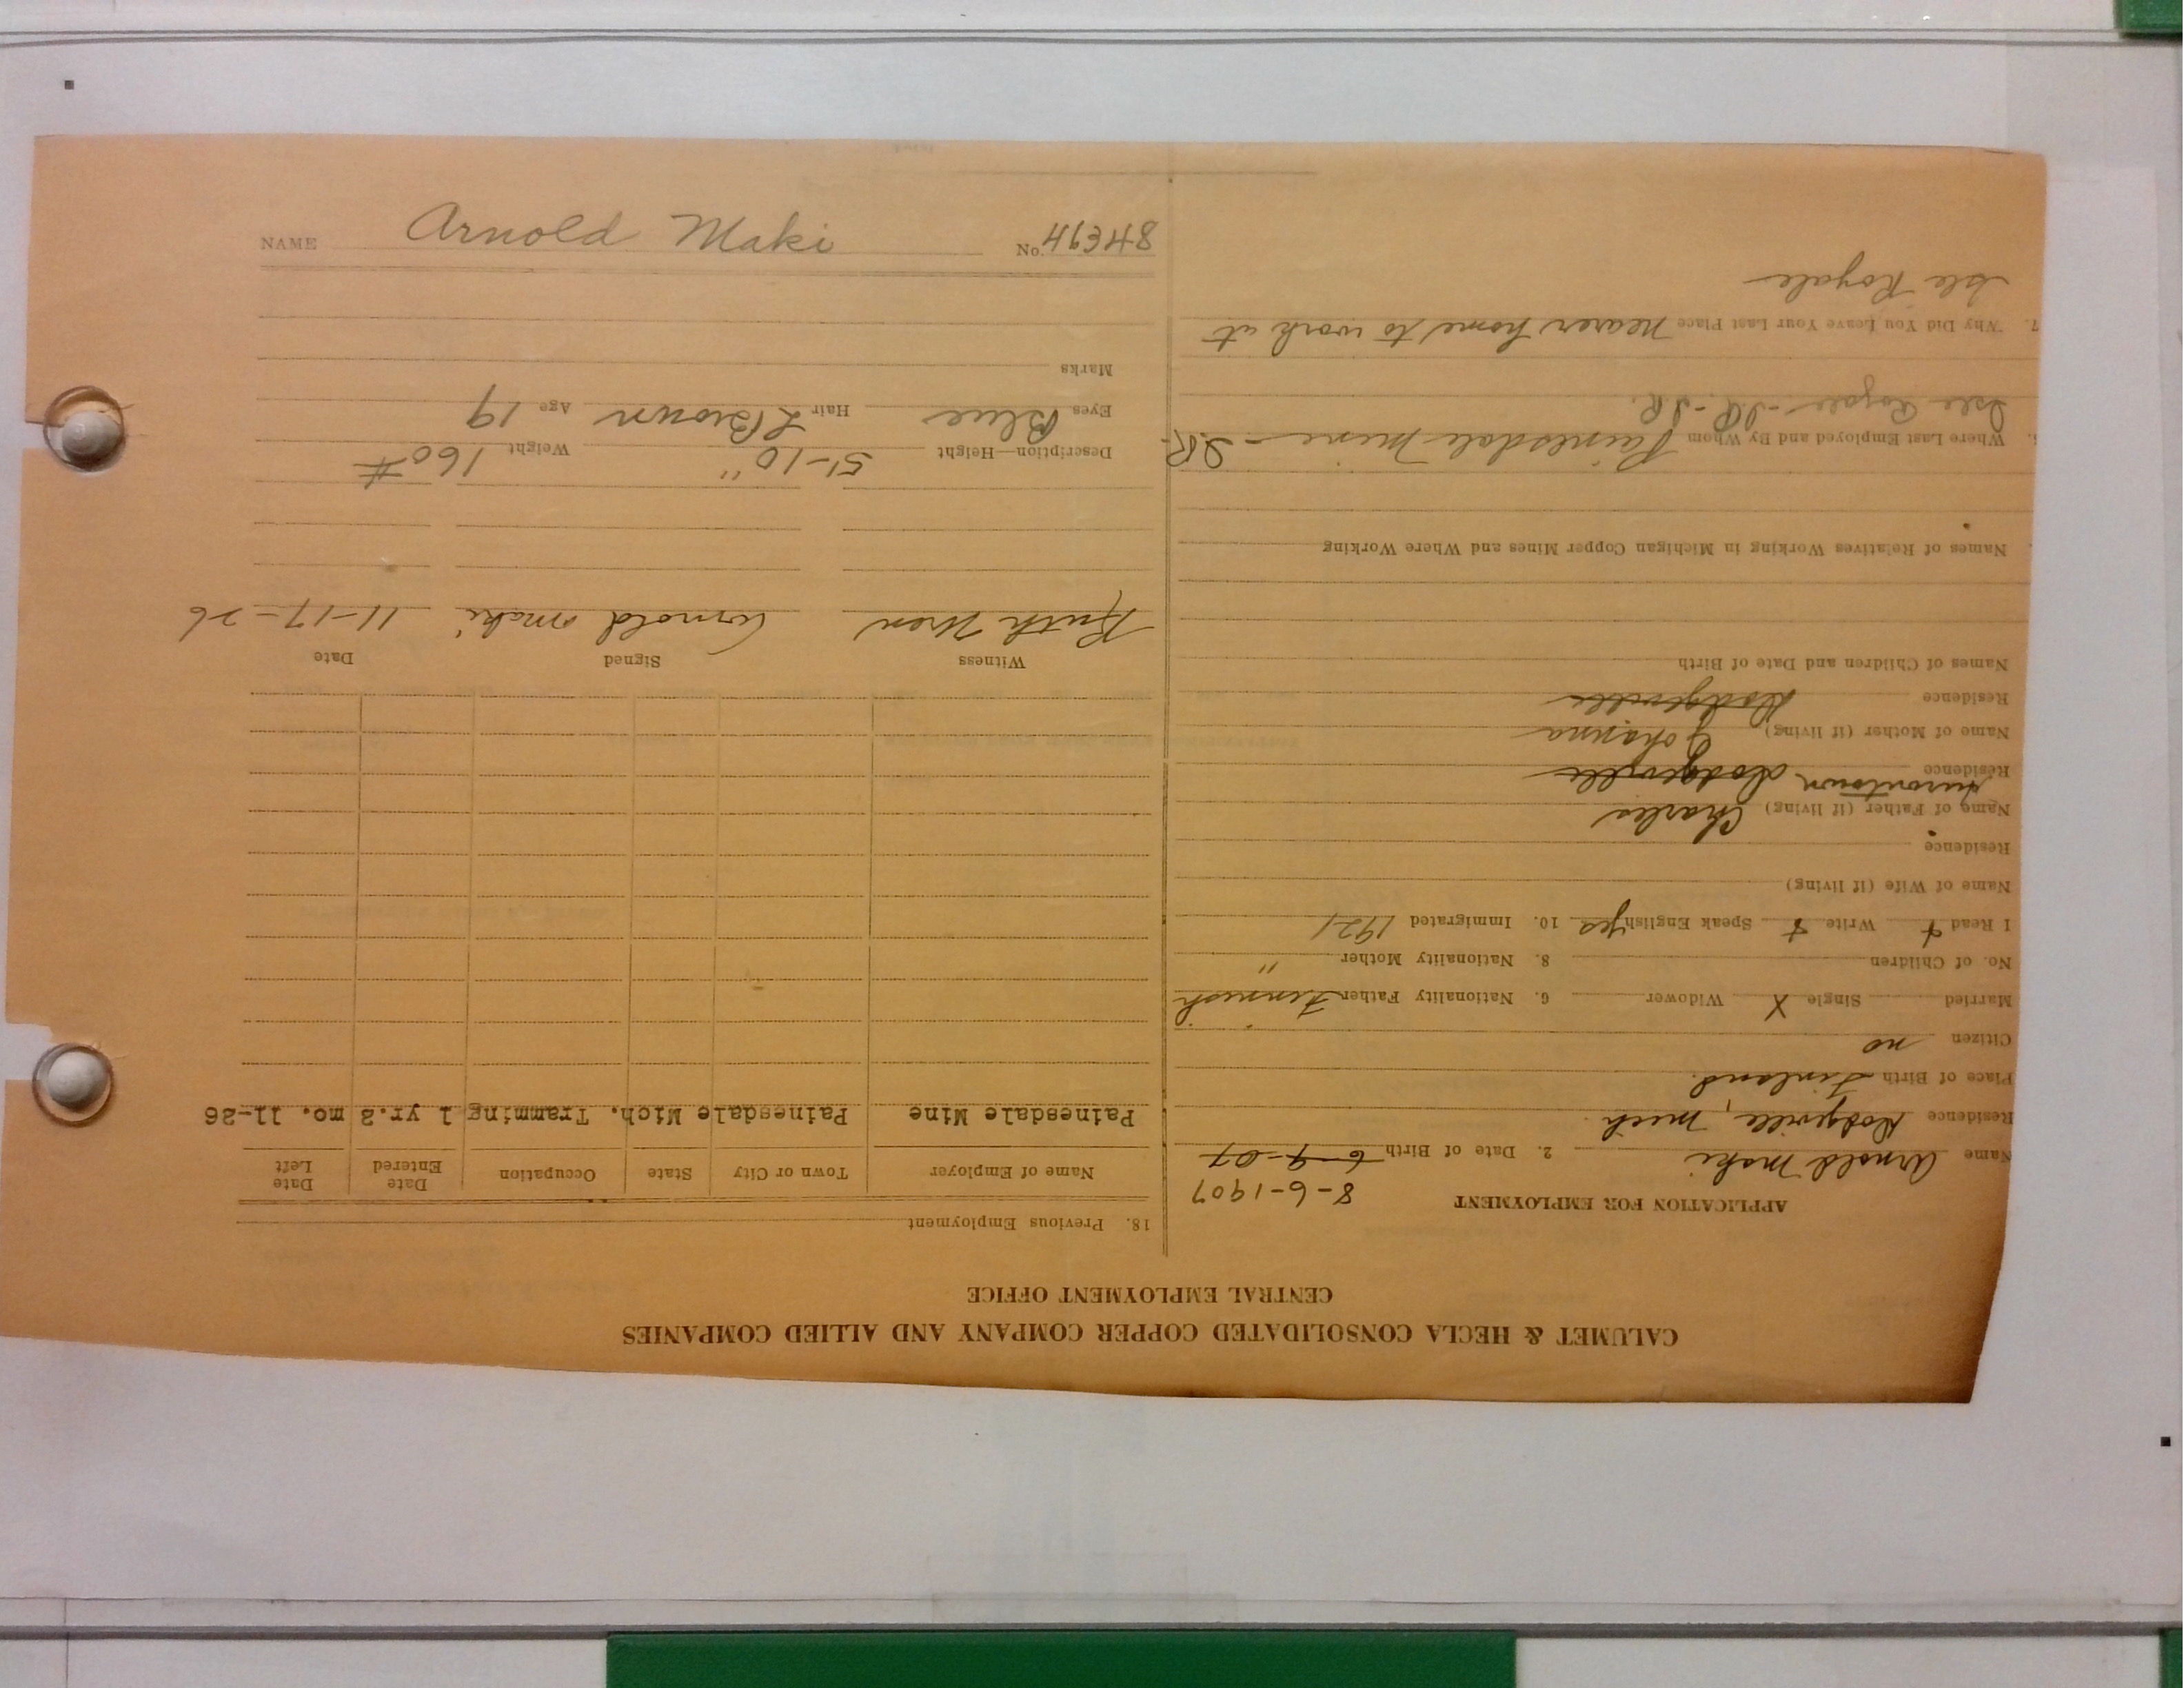 CALUMET & HECLA CONSOLIDATED COPPER COMPANY AND ALLIED COMPANIES
CENTRAL EMPLOYMENT OFFICE
APPLICATION FOR EMPLOYMENT
8-6-1907
Name Arnold Maki 2. Date of Birth 6-9-07
Residence Dodgeville, Mich.
Place of Birth Finland.
Citizen no
Married Single X Widower 6. Nationality Father Finnish
No. of Children 8. Nationality Mother "
I Read + Write + Speak English yes 10. Immigrated 1921
Name of Wife (if living)
Residence
Name of Father (if living) Charles
Residence Hurontown Dodgeville
Name of Mother (if living) Johanna
Residence Dodgeville
Names of Children and Date of Birth
Names of Relatives Working in Michigan Copper Mines and Where Working
Where Last Employed and By Whom Painesdale Mine - I.R.-
Isle Royale - I.R. - I.R.
7. Why Did You Leave Your Last Place nearer home to work at
Isle Royale
18. Previous Employment
Name of Employer Town or City State Occupation Date Entered Date Left
Painesdale Mine Painesdale Mich. Tramming 1 yr.3 mo. 11-26
Witness Signed Date
Ruth Arnold Maki 11-17-26
Description—Height 5'-10" Weight 160#
Eyes Blue Hair L Brown Age 19
Marks
NAME Arnold Maki No.